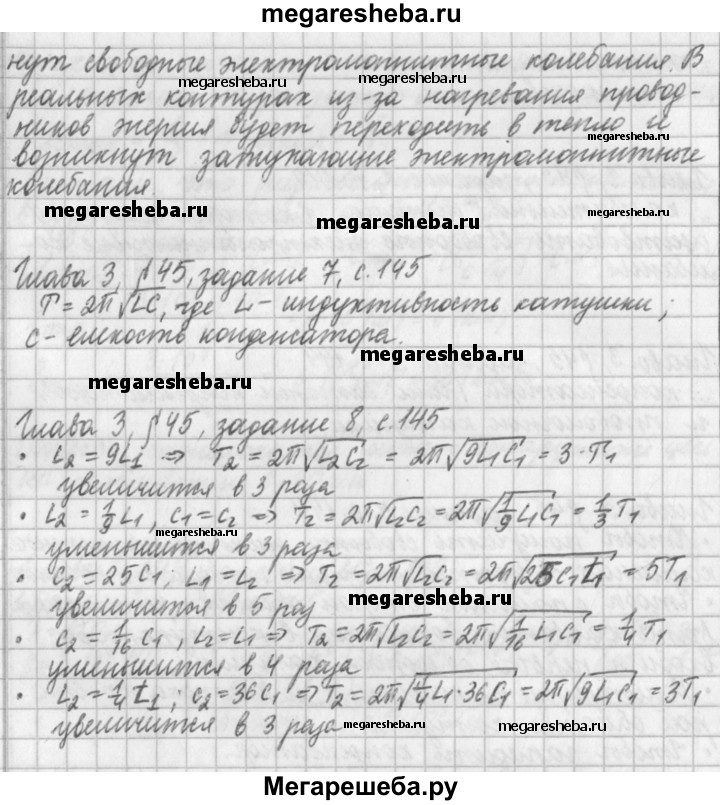 megaresheba.ru
нут свободные электромагнитные колебания. В
megaresheba.ru megaresheba.ru
реальных контурах из-за нагревания провод-
ников энергия будет переходить в тепло и
megaresheba.ru
возникнут затухающие электромагнитные
колебания.
megaresheba.ru megaresheba.ru megaresheba.ru
Глава 3, §45, задание 7, с.145
T = 2π√LC, где L - индуктивность катушки;
C - емкость конденсатора.
megaresheba.ru
megaresheba.ru
Глава 3, §45, задание 8, с.145
• L₂ = 9L₁ ⇒ T₂ = 2π√L₂C₂ = 2π√9L₁C₁ = 3·T₁
увеличится в 3 раза megaresheba.ru
• L₂ = 1/9 L₁, C₁ = C₂ ⇒ T₂ = 2π√L₂C₂ = 2π√1/9 L₁C₁ = 1/3 T₁
megaresheba.ru
уменьшится в 3 раза
• C₂ = 25C₁; L₁ = L₂ ⇒ T₂ = 2π√L₂C₂ = 2π√25C₁L₁ = 5T₁
увеличится в 5 раз megaresheba.ru
• C₂ = 1/16 C₁, L₂ = L₁ ⇒ T₂ = 2π√L₂C₂ = 2π√1/16 L₁C₁ = 1/4 T₁
уменьшится в 4 раза
• L₂ = 1/4 L₁; C₂ = 36C₁ ⇒ T₂ = 2π√1/4 L₁·36C₁ = 2π√9L₁C₁ = 3T₁
увеличится в 3 раза megaresheba.ru megaresheba.ru
Мегарешеба.ру